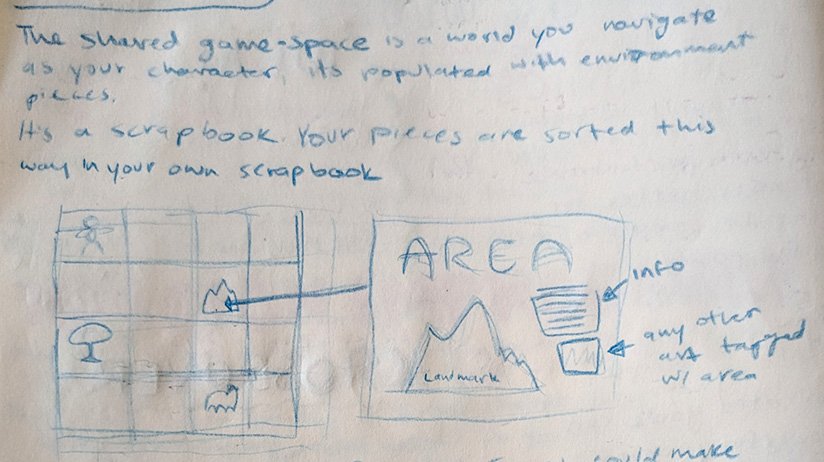 The shared game-space is a world you navigate
as your character, its populated with environment
pieces.
It's a scrapbook. Your pieces are sorted this
way in your own scrapbook
AREA
info
Landmark
any other
art tagged
w/ area
could make